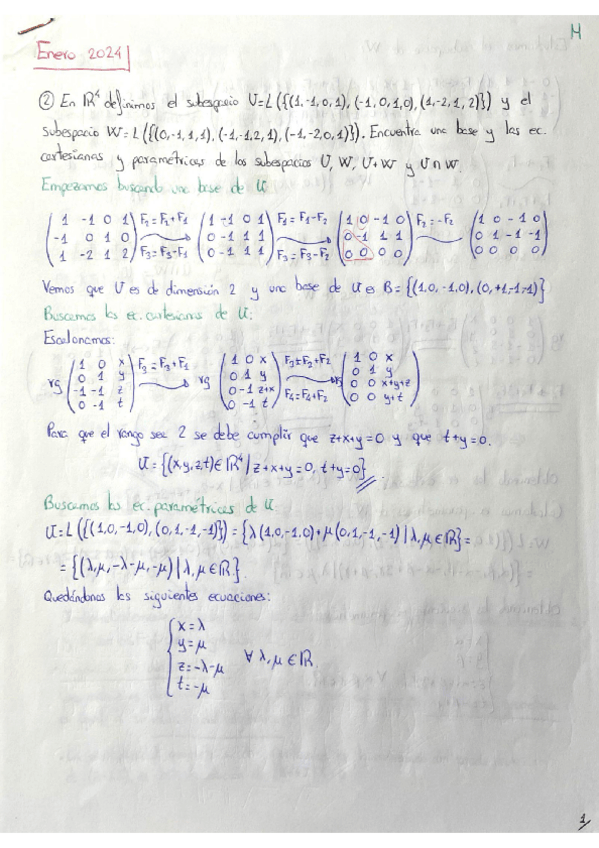 M
Enero 2024
② En ℝ⁴ definimos el subespacio U=L({(1,-1,0,1),(-1,0,1,0),(1,-2,1,2)}) y el
subespacio W=L({(0,-1,1,1),(-1,-1,2,1),(-1,-2,0,1)}). Encuentra una base y las ec.
cartesianas y paramétricas de los subespacios U, W, U+W y U∩W.
Empezamos buscando una base de U
( 1 -1 0 1 F₂=F₂+F₁ ( 1 -1 0 1 F₁=F₁-F₂ ( 1 0 -1 0 F₂=-F₂ ( 1 0 -1 0
-1 0 1 0 0 -1 1 1 0 -1 1 1 0 1 -1 -1
1 -2 1 2 ) F₃=F₃-F₁ 0 -1 1 1 ) F₃=F₃-F₂ 0 0 0 0 ) 0 0 0 0 )
Vemos que U es de dimensión 2 y una base de U es B={(1,0,-1,0),(0,+1,-1,-1)}
Buscamos las ec. cartesianas de U:
Escalonamos:
( 1 0 x F₃=F₃+F₁ ( 1 0 x F₃=F₃+F₂ ( 1 0 x
rg 0 1 y rg 0 1 y rg 0 1 y
-1 -1 z 0 -1 z+x F₄=F₄+F₂ 0 0 x+y+z
0 -1 t ) 0 -1 t ) 0 0 y+t )
Para que el rango sea 2 se debe cumplir que z+x+y=0 y que t+y=0.
U={(x,y,z,t)∈ℝ⁴ | z+x+y=0, t+y=0}
Buscamos las ec. paramétricas de U
U=L({(1,0,-1,0),(0,1,-1,-1)})={λ(1,0,-1,0)+μ(0,1,-1,-1) | λ,μ∈ℝ}=
={(λ,μ,-λ-μ,-μ) | λ,μ∈ℝ}
Quedándonos las siguientes ecuaciones:
{ x=λ
y=μ
z=-λ-μ ∀ λ,μ∈ℝ.
t=-μ
1